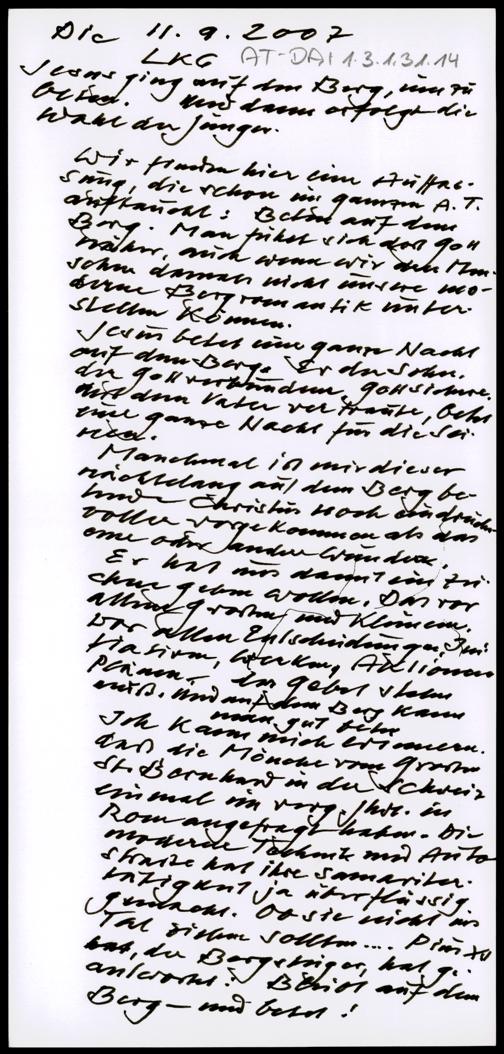 Die 11.9.2007
LKG AT-DAI 1.3.1.31.14
Jesus ging auf den Berg, um zu
beten. Und dann erfolgt die
Wahl der Jünger.
Wir finden hier eine Auffas-
sung, die schon im ganzen A.T.
auftaucht: Beten auf dem
Berg. Man fühlt sich dort Gott
näher, auch wenn wir den Men-
schen damals nicht unsere mo-
derne Bergromantik unter-
stellen können.
Jesus betet eine ganze Nacht
auf dem Berge. Er der Sohn.
der gottverbundene, gottsichere,
mit dem Vater vertraute, betet
eine ganze Nacht für die Sei-
nen.
Manchmal ist mir dieser
nächtelang auf dem Berg be-
tende Christus noch eindrucks-
voller vorgekommen als das
eine oder andere Wunder.
Er hat uns damit ein Zei-
chen geben wollen. Das vor
allem großen und Kleinem,
vor allen Entscheidungen,
Werken, Aktionen
Plänen das Gebet stehen
muß. Und auf dem Berg kann
man gut beten
Ich kann mich erinnern.
daß die Mönche vom Großen
St. Bernhard in der Schweiz
einmal im vorg. Jhrt. in
Rom angefragt haben. Die
moderne Technik und Auto-
straße hat ihre Samariter-
tätigkeit ja überflüssig
gemacht. Ob sie nicht ins
Tal ziehen sollten.... Pius XI
hat, der Bergsteiger, hat ge-
antwortet: Bleibt auf dem
Berg – und betet!